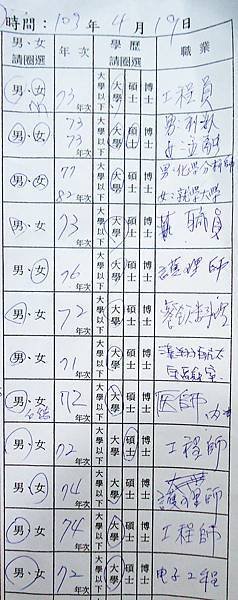 時間：103年4月19日
男、女 請圈選 年次 學歷 請圈選 職業
男、女 73年次 大學以下 大學 碩士 博士 工程員
男、女 73 73年次 大學以下 大學 碩士 博士 男:
男、女 77 82年次 大學以下 大學 碩士 博士 男:化學分析師 女:就學大學
男、女 73年次 大學以下 大學 碩士 博士 職員
男、女 76年次 大學以下 大學 碩士 博士 護理師
男、女 72年次 大學以下 大學 碩士 博士
男、女 71年次 大學以下 大學 碩士 博士
男、女 72年次 大學以下 大學 碩士 博士 醫師
男、女 72年次 大學以下 大學 碩士 博士 工程師
男、女 74年次 大學以下 大學 碩士 博士 護理師
男、女 74年次 大學以下 大學 碩士 博士 工程師
男、女 72年次 大學以下 大學 碩士 博士 电子工程